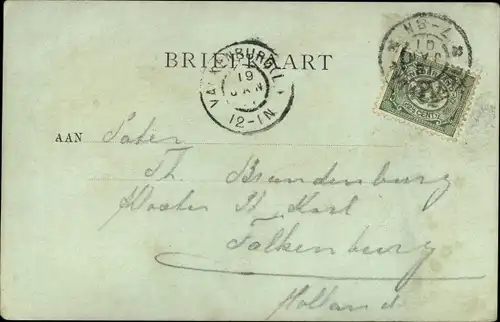 BRIEFKAART
VALKENBURG (L)
19
JAN
12-1N
AAN Pater
Th. Brandenburg
Kloster St. Karl
Falkenburg
Holland